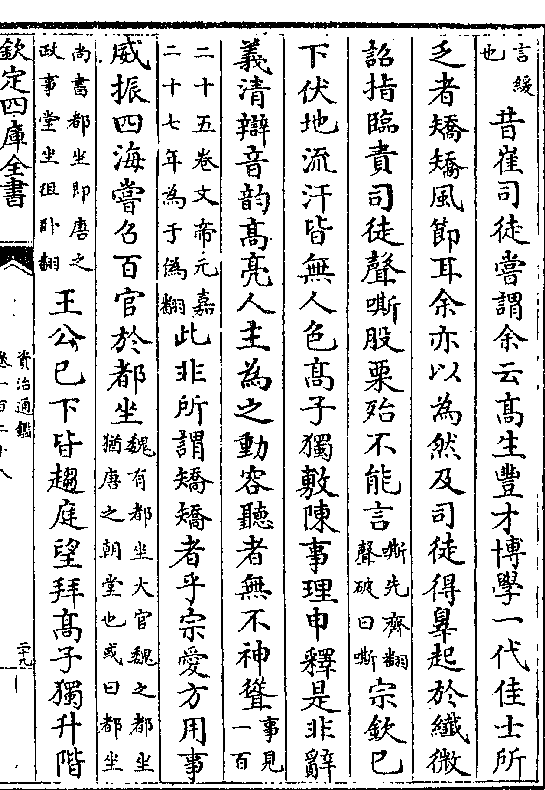 言緩也昔崔司徒嘗謂余云髙生豐才博學一代佳士所
乏者矯矯風節耳余亦以為然及司徒得辠起於纖微
詔指臨責司徒聲嘶股栗殆不能言嘶先齊翻聲破曰嘶宗欽已
下伏地流汗皆無人色髙子獨敷陳事理申釋是非辭
義清辯音韵髙亮人主為之動容聽者無不神聳事見一百
二十五卷文帝元嘉二十七年為于偽翻此非所謂矯矯者乎宗愛方用事
威振四海嘗召百官於都坐魏有都坐大官魏之都坐猶唐之朝堂也或曰都坐
尚書都坐即唐之政事堂坐徂卧翻王公已下皆趨庭望拜髙子獨升階
欽定四庫全書
資治通鑑
卷一百二十八
二十九